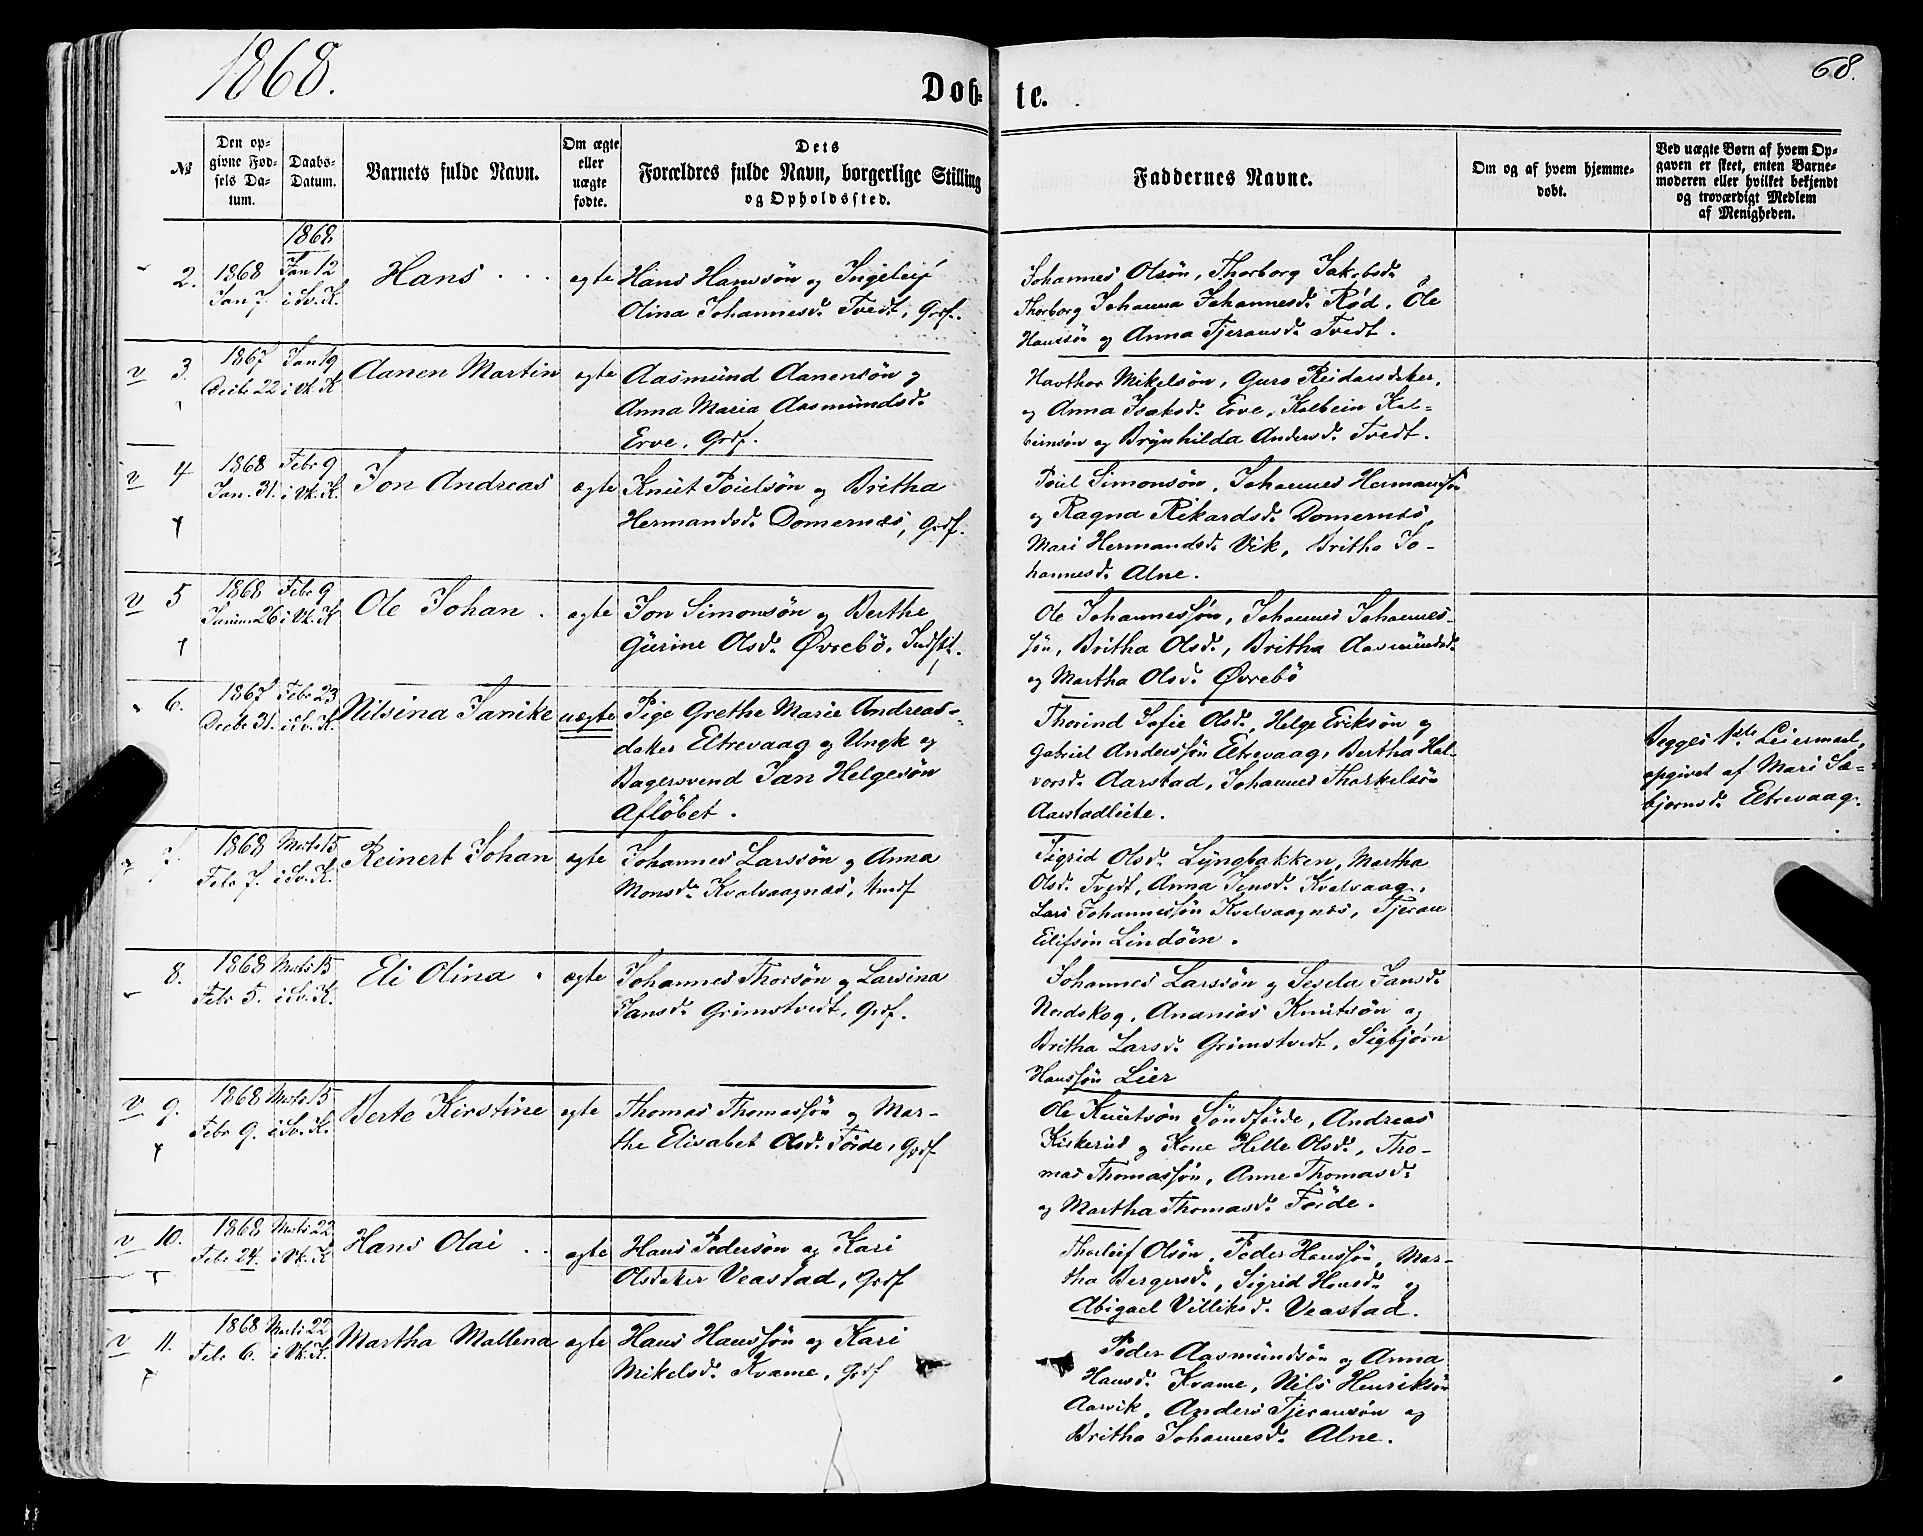 1868.
68.
Døb-
te.
№
Den op-
givne Fød-
sels Da-
tum.
Daabs-
Datum.
Barnets fulde Navn.
Om ægte
eller
uægte
fødte.
Dets
Forældres fulde Navn, borgerlige Stilling
og Opholdssted.
Faddernes Navne.
Om og af hvem hjemme-
døbt.
Ved uægte Børn af hvem Op-
gaven er skeet, enten Barne-
moderen eller hvilket bekjendt
og troværdigt Medlem
af Menigheden.
1868
2.
1868
Jan 7.
Jan 12
i Sv. K.
Hans
egte
Hans Hanssön og Ingeleif
Olina Johannesd. Tvedt, Grdf.
Johannes Olsön, Thorborg Jakobsd.
Thorborg Johanna Johannesd. Rød, Ole
Hanssön og Anna Tjeransd. Tvedt.
v 3.
1867
Decbr 22
Jan 19
i Vk. K
Aanen Martin
egte
Aasmund Aanensön og
Anna Maria Aasmundsd.
Erve, Grdf.
Havthor Mikelsön, Guro Reidarsdtker,
og Anna Isaksd. Erve, Kolbein Kol-
beinsön og Brynhilda Andersd. Tvedt.
v 4
1868
Jan. 31.
Febr 9
i Vk. K.
Jon Andreas
ægte
Knut Poulsön og Britha
Hermandsd. Domernes, Grdf.
Poul Simonsön, Johannes Hermansön
og Ragna Rikardsd. Domernes,
Mari Hermandsd. Vik, Britha Jo-
hannesd. Alne.
v 5
1868
Januar 26
Febr 9
i Vk. K
Ole Johan
egte
Jon Simonsön og Berthe
Gurine Olsd. Øvrebö, Indst.
Ole Johannessön, Johannes Johannes-
sön, Britha Olsd., Britha Aasmundsd.
og Martha Olsd. Øvrebö
6.
1867
Decbr 31.
Febr 23
i Sv. K.
Nilsina Janike
uægte
Pige Grethe Marie Andreas-
datter Eltrevaag og Ungk og
Bagersvend Jan Helgesön
Aflöbet.
Thorind Sofie Olsd., Helge Eriksön og
Gabriel Anderssön Eltrevaag, Bertha Hal-
vorsd. Aarstad, Johannes Thorkelsön
Aarstadleite.
Begges 1ste Leiermaal,
opgivet af Mari Sæ-
bjørnsd. Eltrevaag.
7.
1868
Febr 7.
Marts 15
i Sv. K.
Reinert Johan
ægte
Johannes Larssön og Anna
Monsd. Kvalvaagnes, Hmdf
Sigrid Olsd. Lyngbakken, Martha
Olsd. Tvedt, Anna Jensd. Kvalvaag,
Lars Johannessön Kvalvaagnes, Tjeran
Eilifsön Lindöen.
8.
1868
Febr 5.
Marts 15
i Sv. K.
Eli Olina
ægte
Johannes Thorsön og Larsina
Jansd. Grimstvedt, Grdf.
Johannes Larssön og Sesela Jansd.
Nordskog, Ananias Knutsön og
Britha Larsd. Grimstvedt, Sigbjörn
Hanssön Lier
v 9.
1868
Febr 9.
Marts 15
i Sv. K.
Berte Kirstine
egte
Thomas Thomassön og Mar-
the Elisabet Olsd. Föide, Grdf
Ole Knutsön Söndföide, Andreas
Kiskerud og Kone Helle Olsd., Tho-
mas Thomassön, Anne Thomasd.
og Martha Thomasd. Föide.
v 10.
1868
Febr 24.
Marts 22
i Vk. K
Hans Olai
egte
Hans Pedersön og Kari
Olsdatter Veastad, Grdf
Thorleif Olsön, Peder Hanssön, Mar-
tha Bergersd., Sigrid Hansd. og
Abigael Villiksd. Veastad.
v 11.
1868
Febr 6.
Marts 22
i Vk. K.
Martha Mallena
egte
Hans Hanssön og Kari
Mikelsd. Kvame, Grdf
Peder Aasmundsön og Anna
Hansd. Kvame, Nils Henriksön
Aarvik, Anders Tjeransön og
Britha Johannesd. Alne.